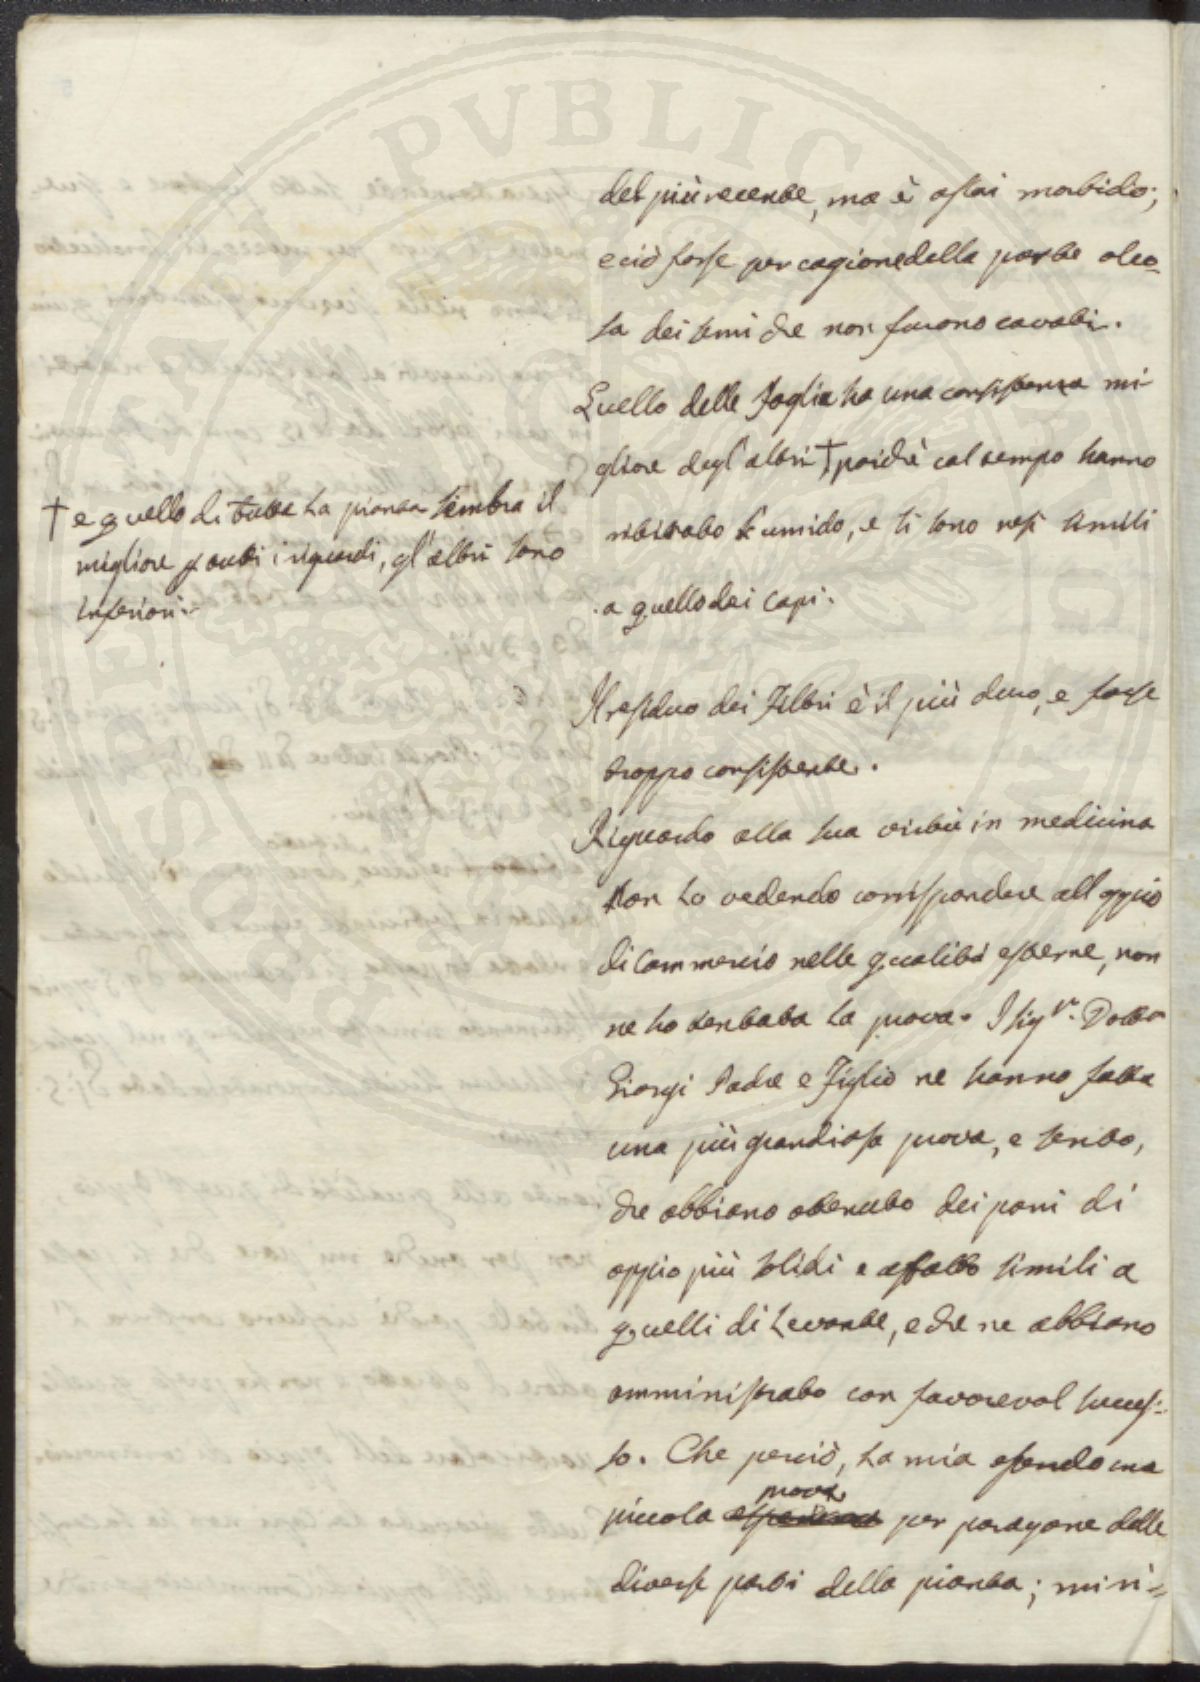 del più recente, ma è assai morbido;
e ciò forse per cagione della parte oleo-
sa dei semi che non furono cavati.
Quello delle Foglie ha una consistenza mi-
gliore degl'altri † poichè col tempo hanno
ritirato l'umido, e si sono resi simili
a quello dei Capi.
† e quello di tutta la pianta sembra il
migliore p tutti i riguardi, gl'altri sono
inferiori.
Il residuo dei Filtri è il più duro, e forse
troppo consistente.
Riguardo alla sua virtù in medicina
Non lo vedendo corrispondere all oppio
di Commercio nelle qualità esterne, non
ne ho tentata la prova. I Sigri. Dotto
Giorgi Padre e Figlio ne hanno fatta
una più grandiosa prova, e sento,
che abbiano ottenuto dei pani di
oppio più solidi e affatto simili a
quelli di Levante, e che ne abbiano
amministrato con favorevol succes-
so. Che perciò, la mia essendo una
prova
piccola per paragone delle
diverse parti della pianta; mi ri=
PUBLIC